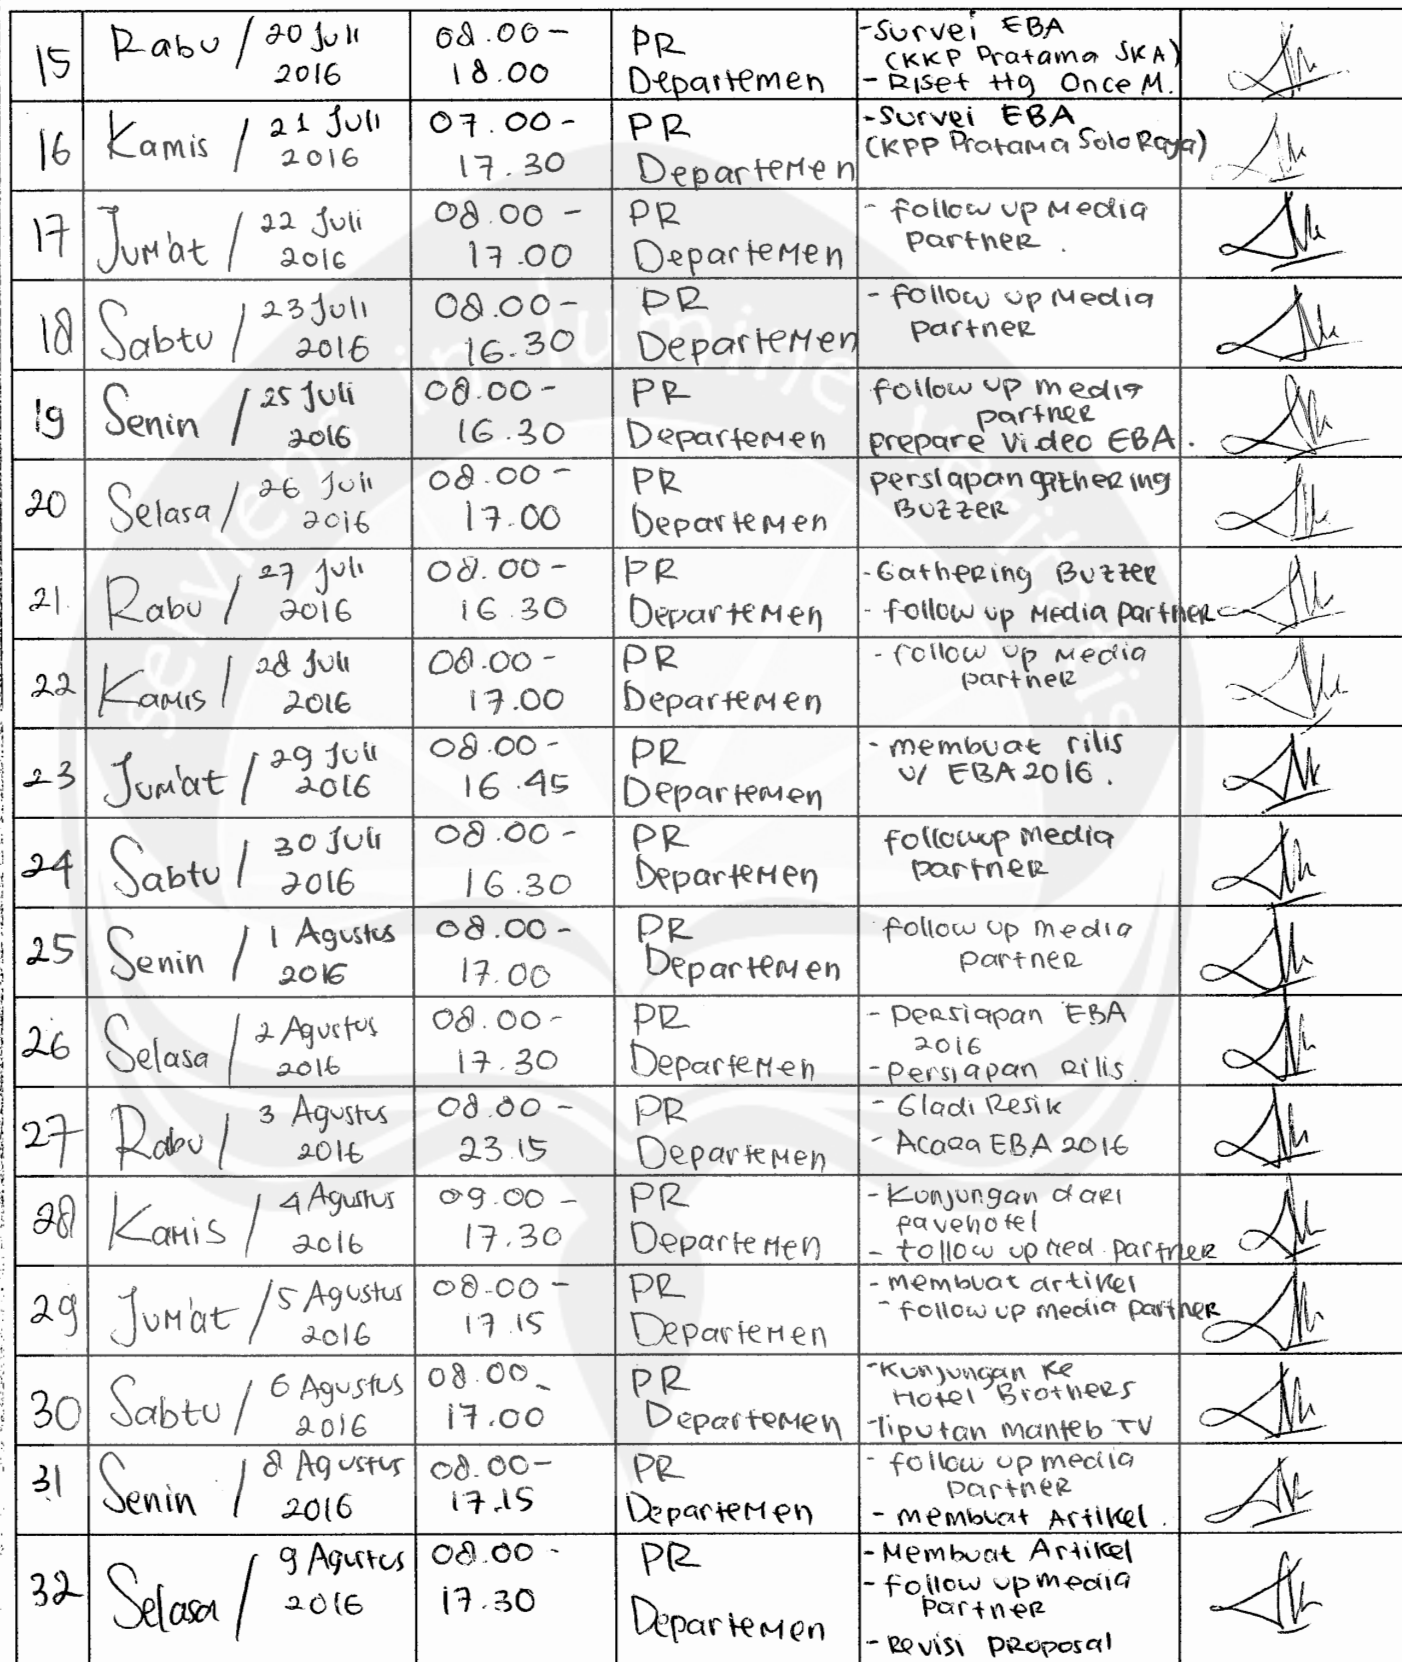 15 Rabu / 20 Juli 2016 08.00- 18.00 PR Departemen -Survei EBA (KKP Pratama SKA) - Riset Hg Once M.
16 Kamis / 21 Juli 2016 07.00- 17.30 PR Departemen -Survei EBA (KPP Pratama Solo Raya)
17 Jum'at / 22 Juli 2016 08.00 - 17.00 PR Departemen - follow up Media partner .
18 Sabtu / 23 Juli 2016 08.00- 16.30 PR Departemen - follow up Media partner
19 Senin / 25 Juli 2016 08.00- 16.30 PR Departemen follow up media partner prepare video EBA .
20 Selasa / 26 Juli 2016 08.00- 17.00 PR Departemen persiapan gathering Buzzer
21. Rabu / 27 Juli 2016 08.00- 16.30 PR Departemen -Gathering Buzzer - follow up Media partner
22 Kamis / 28 Juli 2016 08.00- 17.00 PR Departemen - follow up Media partner
23 Jum'at / 29 Juli 2016 08.00- 16.45 PR Departemen - membuat rilis u/ EBA 2016 .
24 Sabtu / 30 Juli 2016 08.00- 16.30 PR Departemen followup Media partner
25 Senin / 1 Agustus 2016 08.00- 17.00 PR Departemen follow up media partner
26 Selasa / 2 Agustus 2016 08.00- 17.30 PR Departemen - Persiapan EBA 2016 - Persiapan Rilis.
27 Rabu / 3 Agustus 2016 08.00- 23.15 PR Departemen - Gladi Resik - Acara EBA 2016
28 Kamis / 4 Agustus 2016 09.00 - 17.30 PR Departemen - Kunjungan dari favehotel - follow up med. partner
29 Jum'at / 5 Agustus 2016 08.00- 17.15 PR Departemen - membuat artikel - follow up media partner
30 Sabtu / 6 Agustus 2016 08.00- 17.00 PR Departemen -Kunjungan ke Hotel Brothers -liputan manteb TV
31 Senin / 8 Agustus 2016 08.00- 17.15 PR Departemen - follow up media partner - membuat Artikel .
32 Selasa / 9 Agustus 2016 08.00- 17.30 PR Departemen - Membuat Artikel - follow up media partner - Revisi proposal
serviens in lumine veritatis